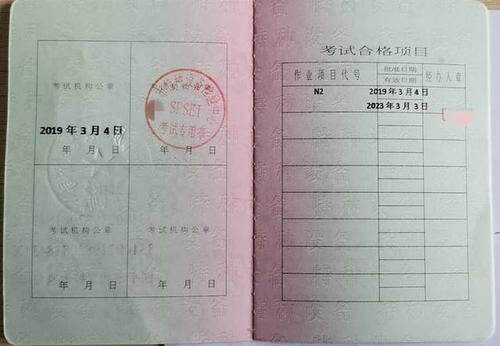 考试机构公章
SPSEI
考试专用章
2019 年 3 月 4 日
年 月 日
年 月 日
考试机构公章
考试机构公章
年 月 日
年 月 日
考试合格项目
作业项目代号
批准日期
有效日期
经办人章
N2
2019 年 3 月 4 日
2023 年 3 月 3 日